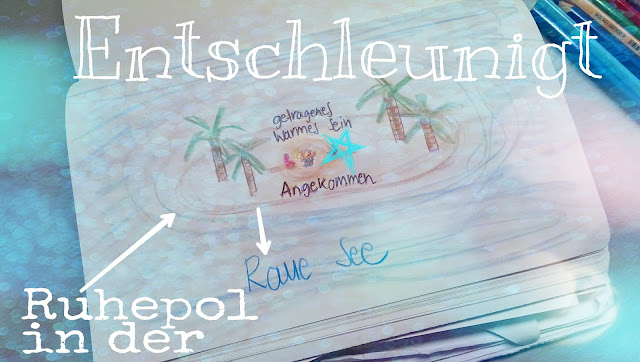 Entschleunigt
getragenes
Warmes Sein
Angekommen
Raue See
Ruhepol
in der